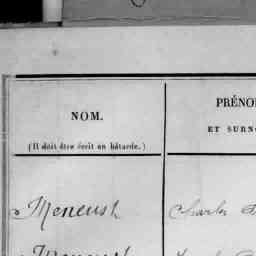 NOM.
(Il doit être écrit en bâtarde.)
PRÉNO
ET SURNO
Meneust
Charles